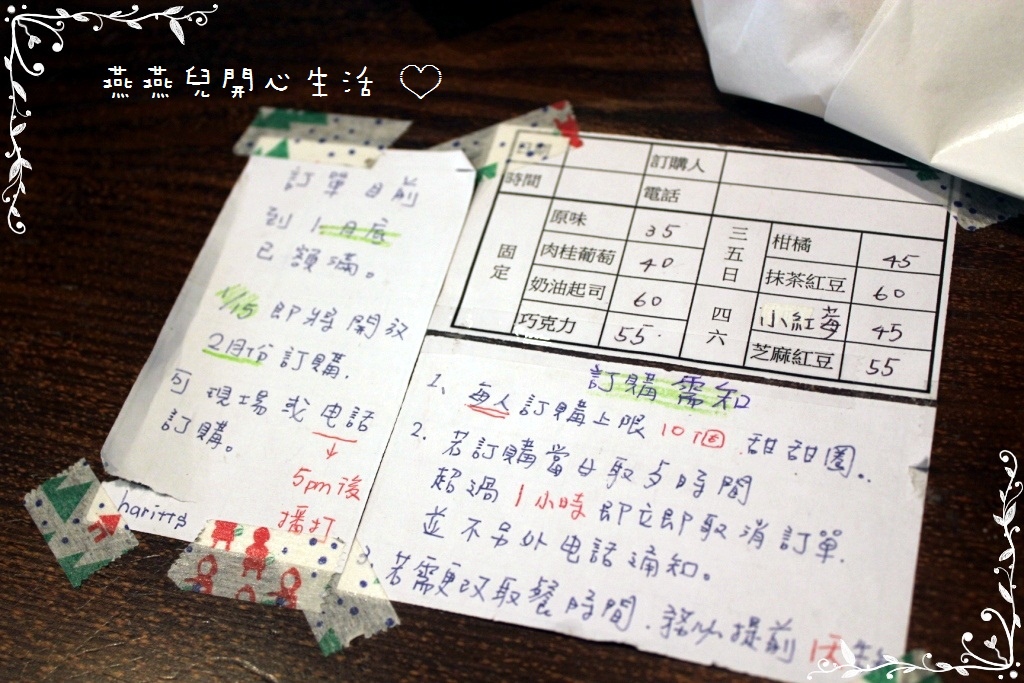 燕燕兒開心生活
訂單目前
到1月底
已額滿。
1/15即將開放
2月份訂購.
可現場或电話
訂購。
5pm後
播打
haritts
訂購人
時間
電話
固定
原味 35
肉桂葡萄 40
奶油起司 60
巧克力 55
三五日
柑橘 45
抹茶紅豆 60
四六
小紅莓 45
芝麻紅豆 55
訂購需知
1、每人訂購上限10個甜甜圈..
2.若訂購當日取与時間
超過1小時即立即取消訂單.
並不另外电話通知。
3.若需更改取餐時間.務必提前1天